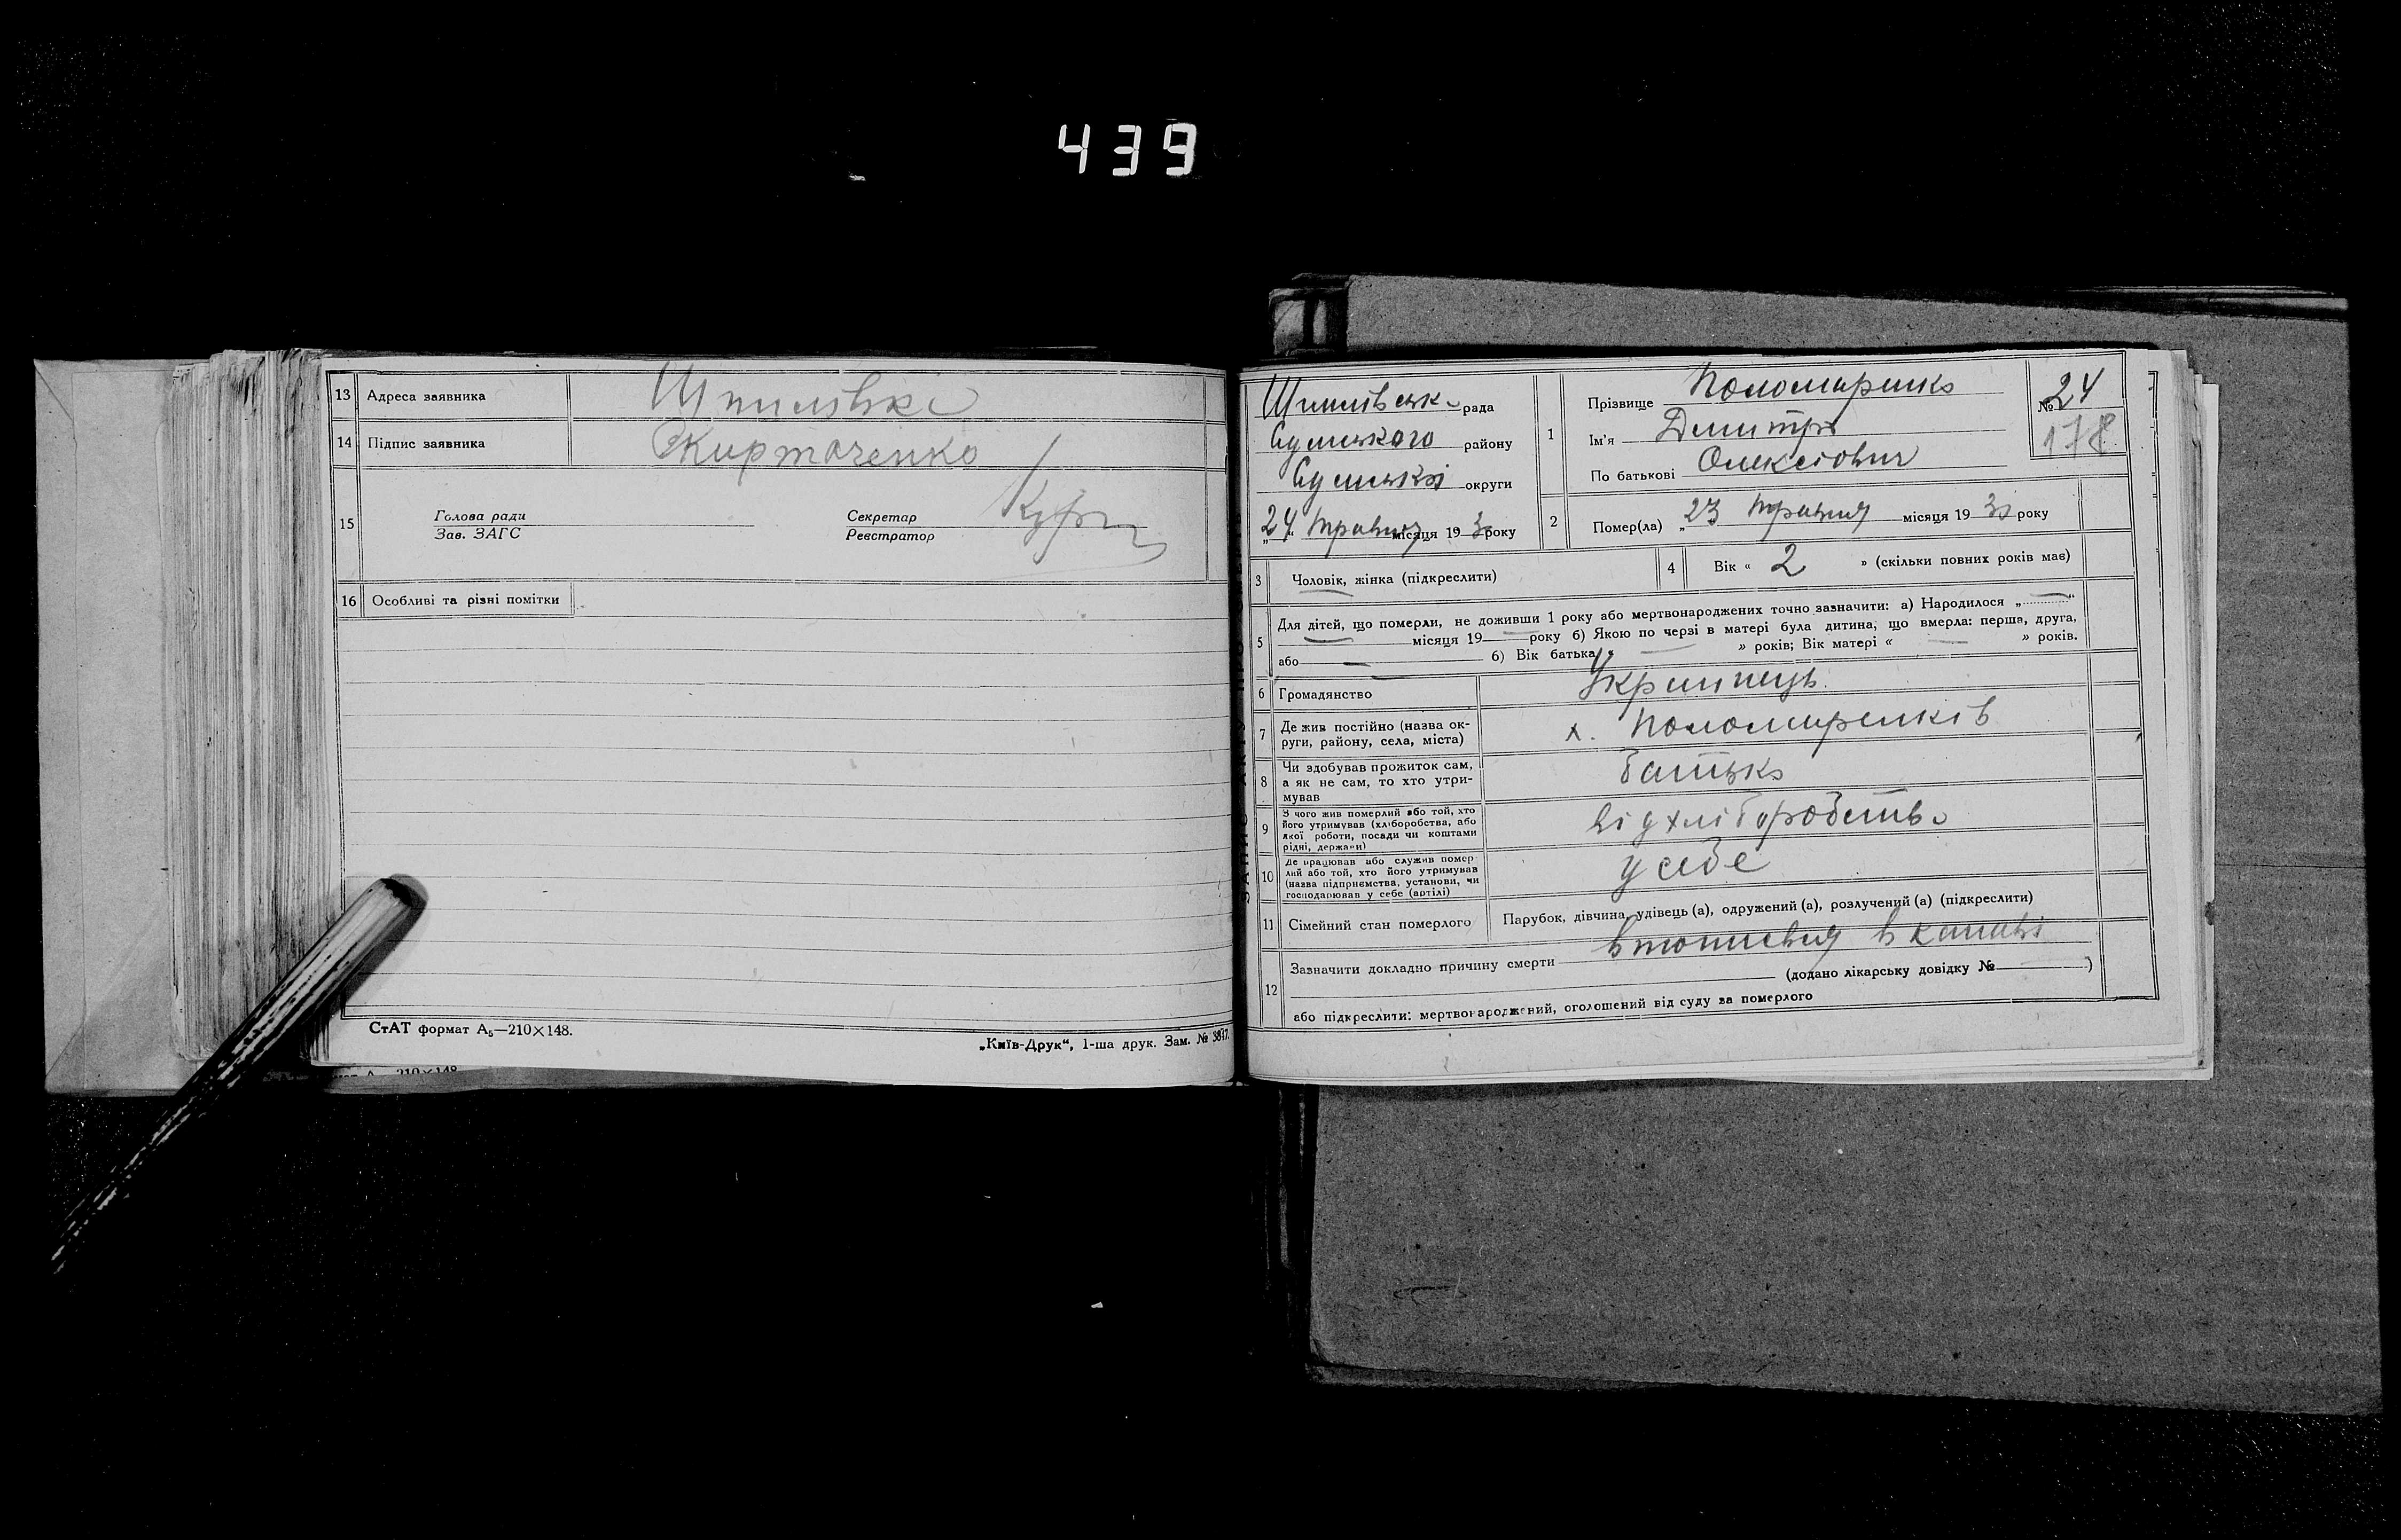 439
13 Адреса заявника Шпилівка
14 Підпис заявника Скирточенко
15 Голова ради
Зав. ЗАГС
Секретар
Реєстратор
16 Особливі та різні помітки
СтАТ формат А₅—210×148.
„Київ-Друк“, 1-ша друк. Зам. № 3847.
210×148
Шпилівська рада
Сумського району
Сумської округи
„24“ травня місяця 1930 року
1 Прізвище Пономаренко
Ім'я Дмитро
По батькові Олексіович
№ 24
178
2 Помер(ла) „23 травня місяця 1930 року
3 Чоловік, жінка (підкреслити)
4 Вік « 2 » (скільки повних років мав)
5 Для дітей, що померли, не доживши 1 року або мертвонароджених точно зазначити: а) Народилося „ “
місяця 19 — року б) Якою по черзі в матері була дитина, що вмерла: перша, друга,
або — б) Вік батька « — » років; Вік матері « — » років.
6 Громадянство Украинець
7 Де жив постійно (назва ок-
руги, району, села, міста) х. Пономаренків
8 Чи здобував прожиток сам,
а як не сам, то хто утри-
мував батько
9 З чого жив померлий або той, хто
його утримував (хліборобства, або
якої роботи, посади чи коштами
рідні, держави) від хліборобства
10 Де працював або служив помер-
лий або той, хто його утримував
(назва підприємства, установи, чи
господарював у себе (артілі) у себе
11 Сімейний стан померлого Парубок, дівчина, удівець (а), одружений (а), розлучений (а) (підкреслити)
12 Зазначити докладно причину смерти втопився в канаві
(додано лікарську довідку № )
або підкреслити: мертвонароджений, оголошений від суду за померлого